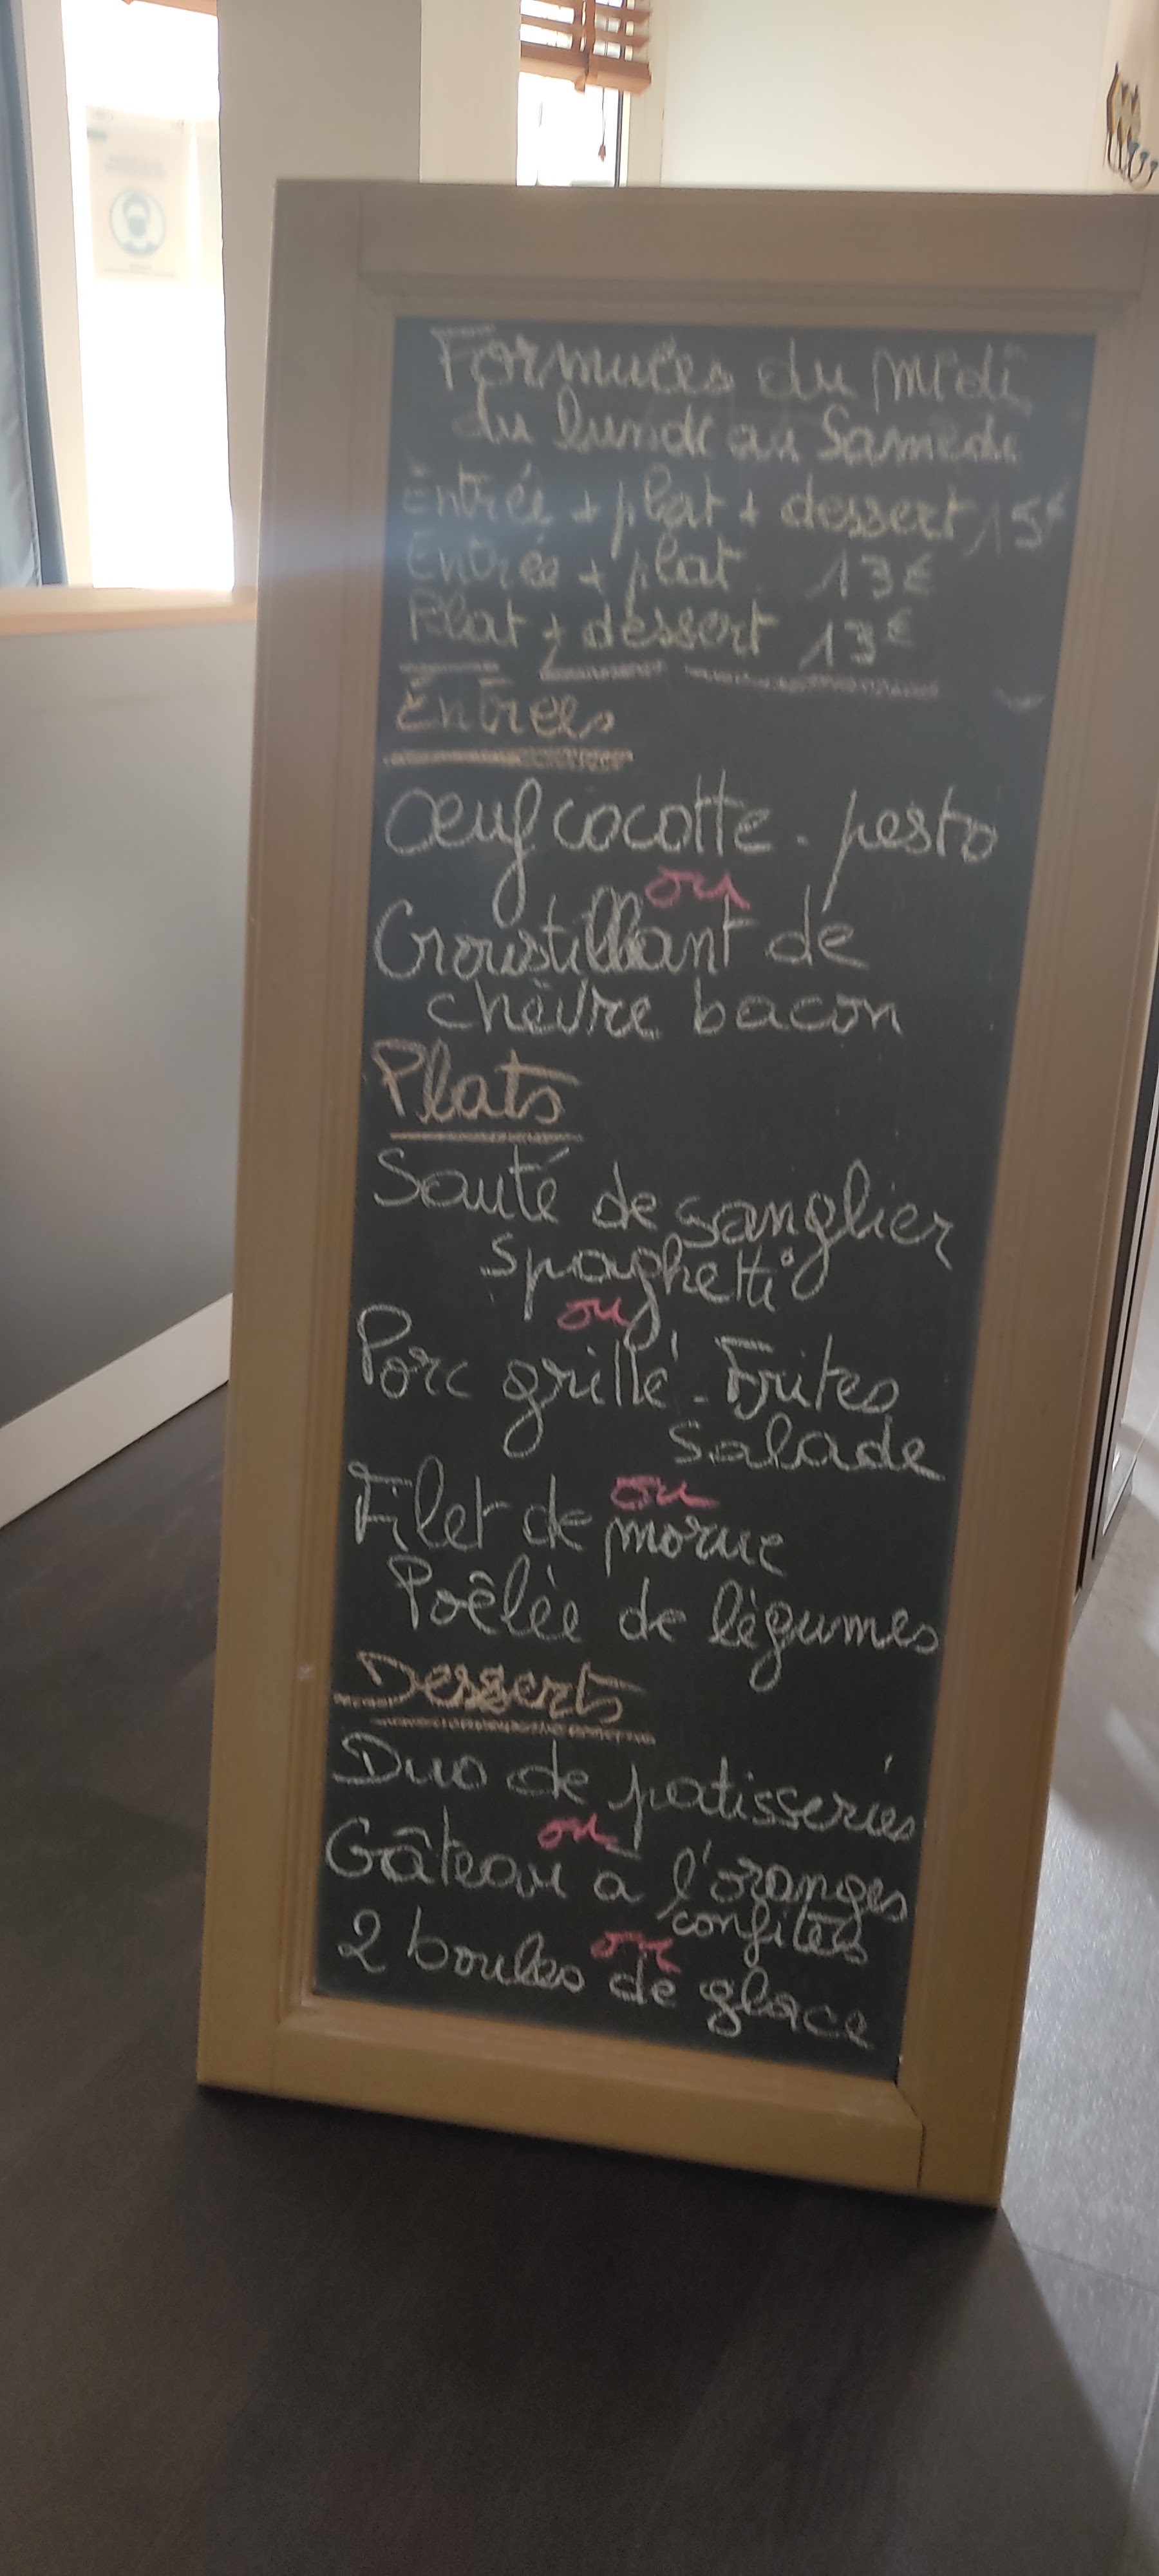 Formules du midi
du lundi au Samedi
Entrée + plat + dessert 15€
Entrée + plat 13€
Plat + dessert 13€
Entrées
Œuf cocotte - pesto
ou
Croustillant de
chèvre bacon
Plats
Sauté de sanglier
spaghetti
ou
Porc grillé - Frites
Salade
ou
Filet de morue
Poêlée de légumes
Desserts
Duo de patisseries
ou
Gâteau a l'oranges
confites
ou
2 boules de glace